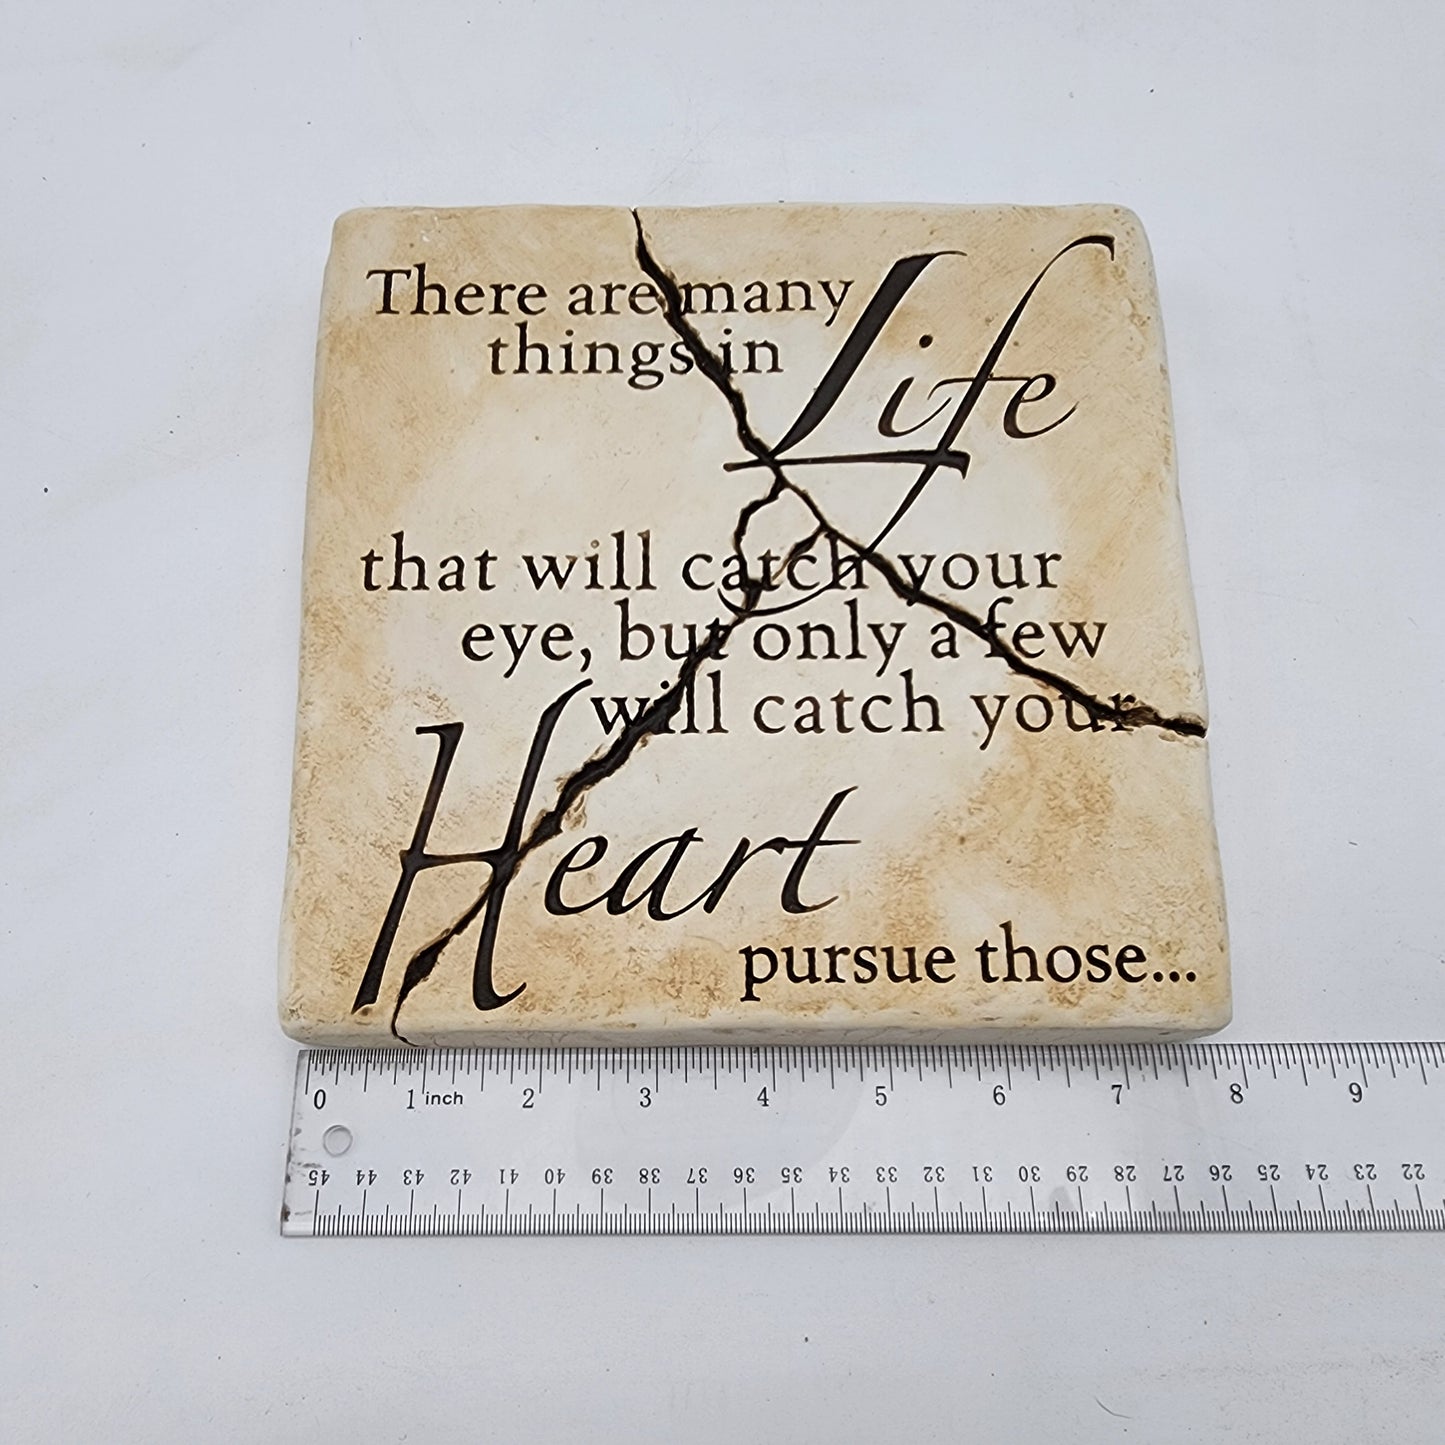 There are many
things in Life
that will catch your
eye, but only a few
will catch your
Heart
pursue those...
0 1 inch 2 3 4 5 6 7 8 9
45 44 43 42 41 40 39 38 37 36 35 34 33 32 31 30 29 28 27 26 25 24 23 22